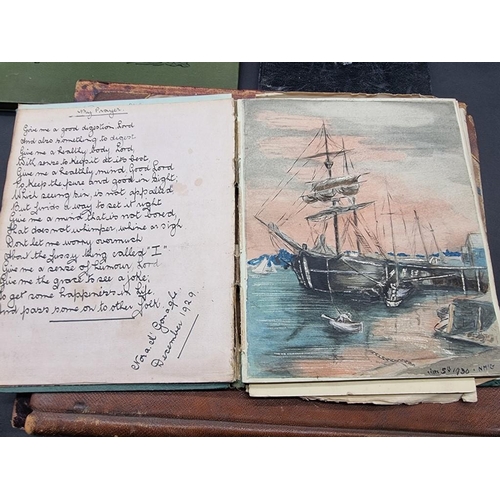 My Prayer
Give me a good digestion Lord
And also something to digest
Give me a healthy body Lord,
With sense to keep it at its best.
Give me a healthy mind, Good Lord
To keep the pure and good in sight;
Which seeing sin, is not appalled
But finds a way to set it right
Give me a mind that is not bored,
That does not whimper, whine or sigh
Dont let me worry overmuch
About the fussy thing called "I"
Give me a sense of humour, Lord
Give me the grace to see a joke;
To get some happiness in life
And pass some on to other folk.
December 1929.
Jan 5th 1930